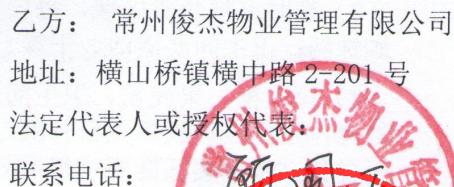 乙方： 常州俊杰物业管理有限公司
地址：横山桥镇横中路 2-201 号
法定代表人或授权代表：
联系电话：
常州俊杰物业管